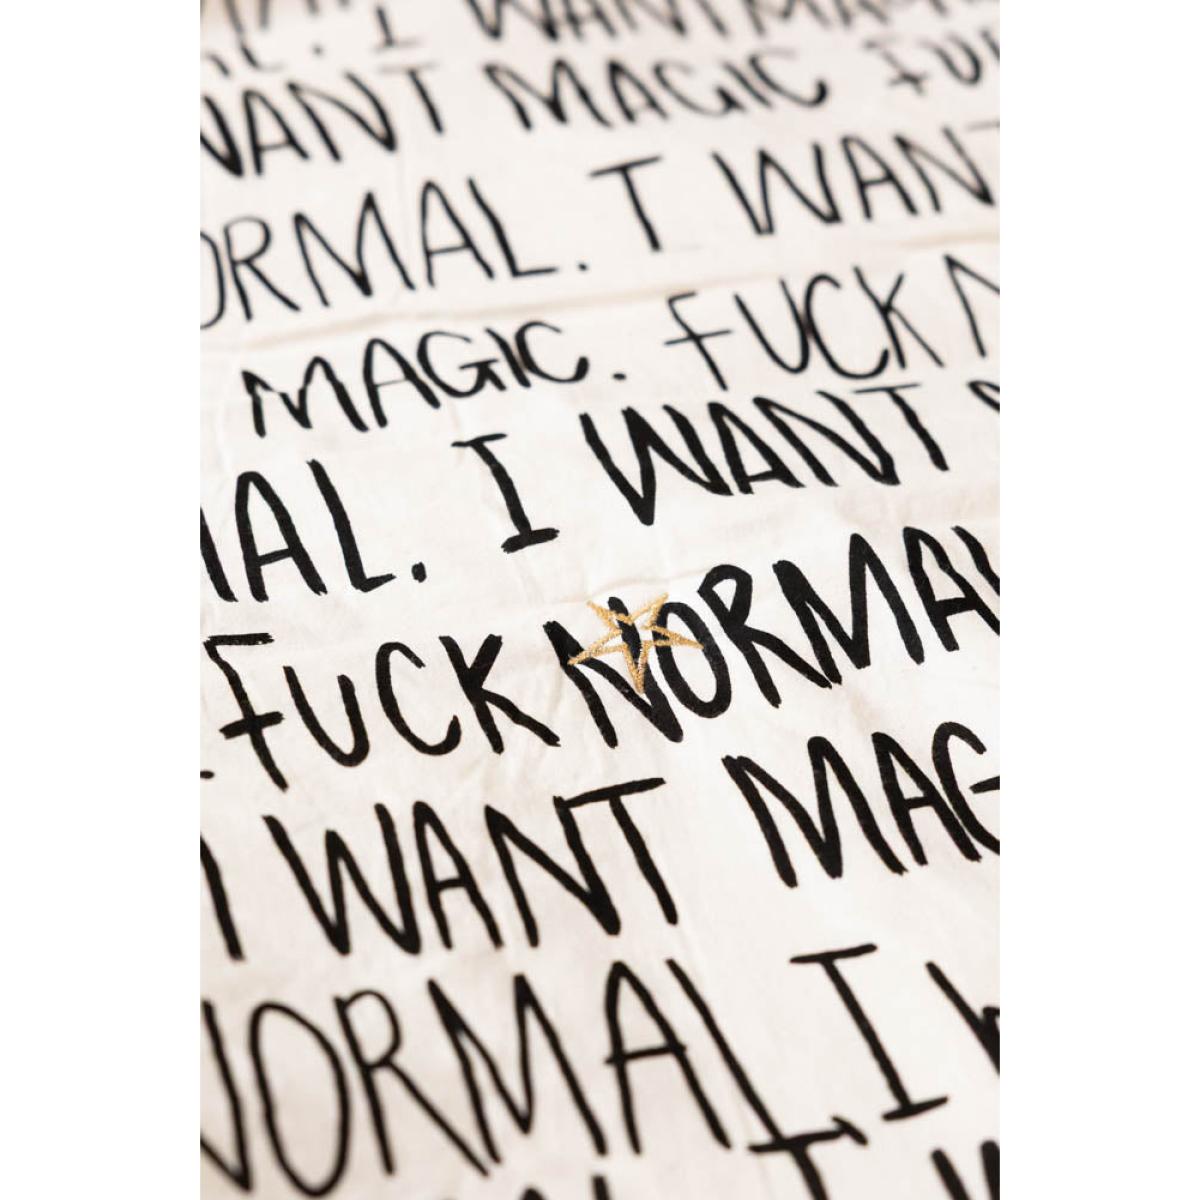 I WANT MAGIC
WANT MAGIC FU
ORMAL. I WANT
MAGIC. FUCK N
MAL. I WANT
. FUCK NORMAL
I WANT MAG
NORMAL. I W